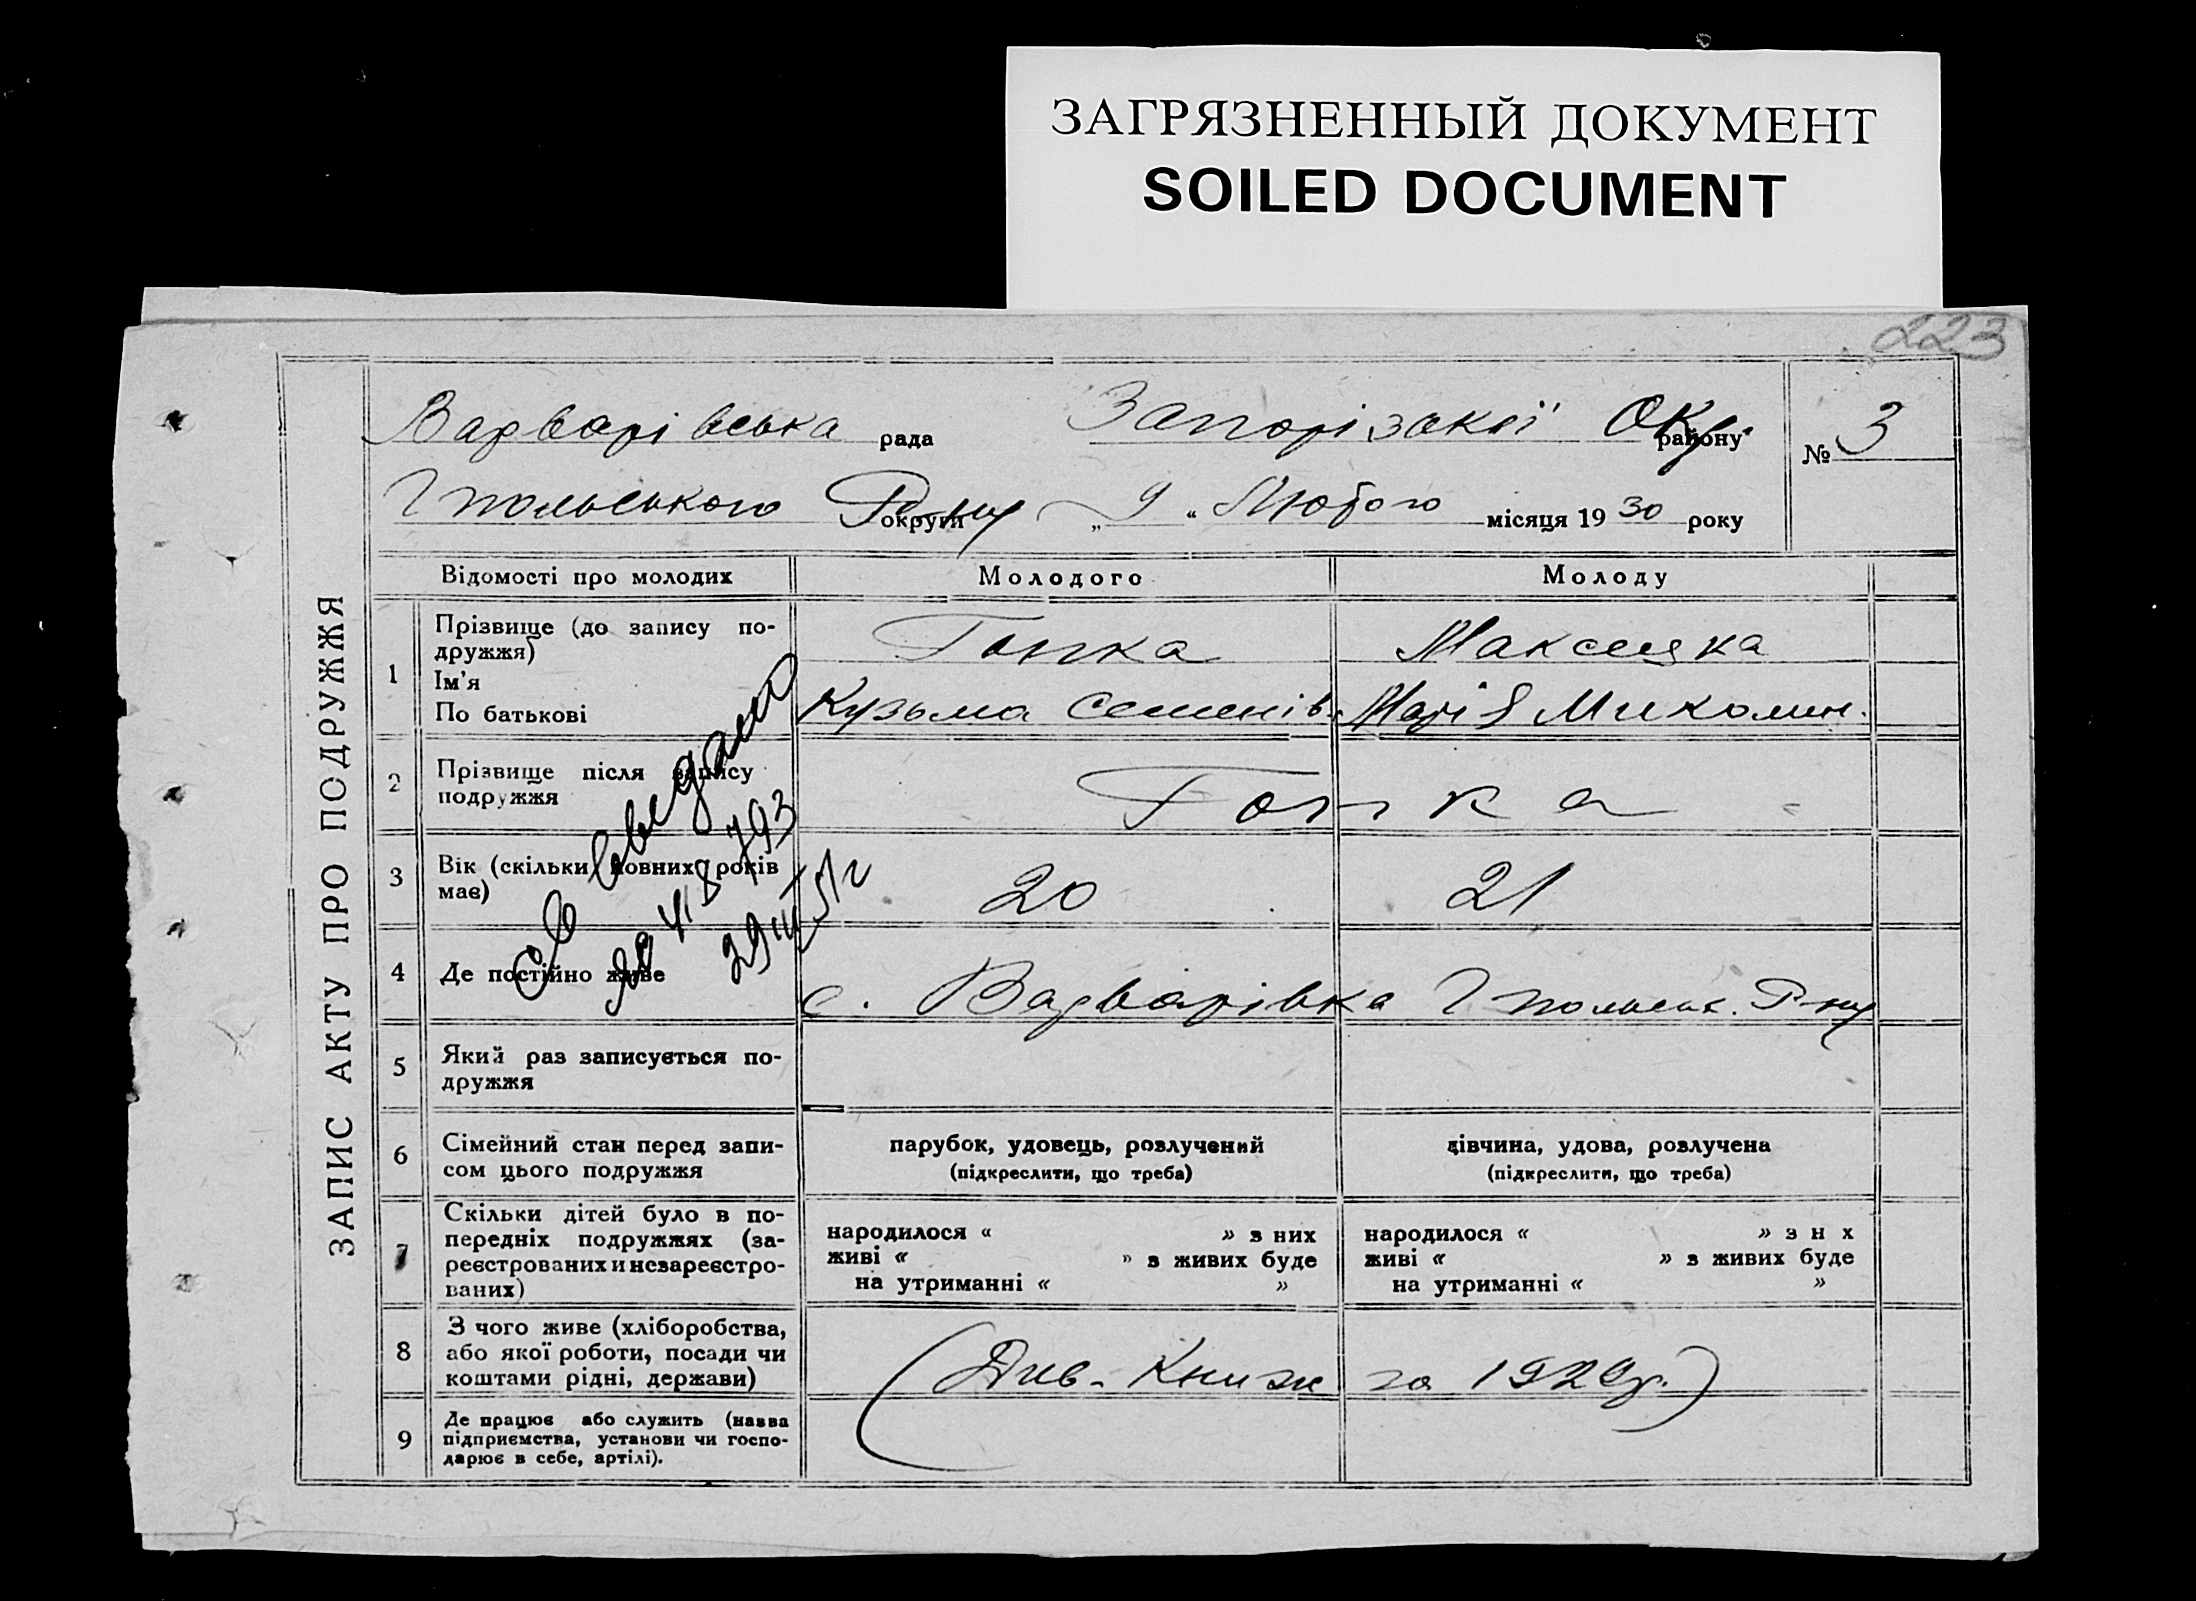 ЗАГРЯЗНЕННЫЙ ДОКУМЕНТ
SOILED DOCUMENT
223
ЗАПИС АКТУ ПРО ПОДРУЖЖЯ
Варварівська рада Запорізької Окр. району
№ 3
Гпольського Р-ну округи „ 9 “ Лютого місяця 19 30 року
Відомості про молодих Молодого Молоду
1 Прізвище (до запису по-
дружжя)
Ім'я
По батькові
Гопка
Кузьма Семенів.
Марія Миколин.
2 Прізвище після запису
подружжя
Гопка
3 Вік (скільки повних років
має)
20 21
4 Де постійно живе
с. Варварівка Гпольськ. Р-ну
29 III 51 г
5 Який раз записується по-
дружжя
6 Сімейний стан перед запи-
сом цього подружжя
парубок, удовець, розлучений
(підкреслити, що треба)
дівчина, удова, розлучена
(підкреслити, що треба)
7 Скільки дітей було в по-
передніх подружжях (за-
реєстрованих и незареєстро-
ваних)
народилося « » з них
живі « » з живих буде
на утриманні « »
народилося « » з н х
живі « » з живих буде
на утриманні « »
8 З чого живе (хліборобства,
або якої роботи, посади чи
коштами рідні, держави)
(Див. Книж за 1929р.)
9 Де працює або служить (назва
підприємства, установи чи госпо-
дарює в себе, артілі).